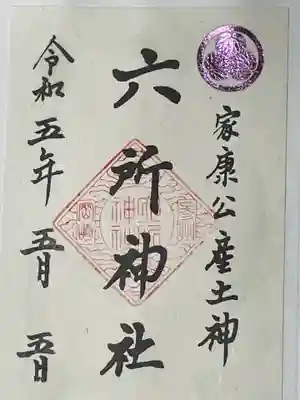 家康公産土神
六所神社
令和五年五月五日